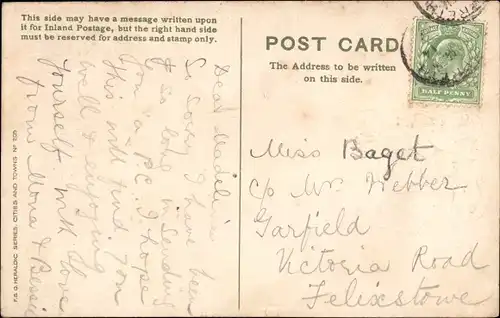 This side may have a message written upon
it for Inland Postage, but the right hand side
must be reserved for address and stamp only.
Dear Madeline
So sorry I have been
so long in sending
you a P.C. I hope
this will find you
well & enjoying
yourself with love
from Mona & Bessie
F.S.O. HERALDIC SERIES, CITIES AND TOWNS Nº
POST CARD
The Address to be written
on this side.
HALF PENNY
Miss Baget
c/o Mr Webber
Garfield
Victoria Road
Felixstowe